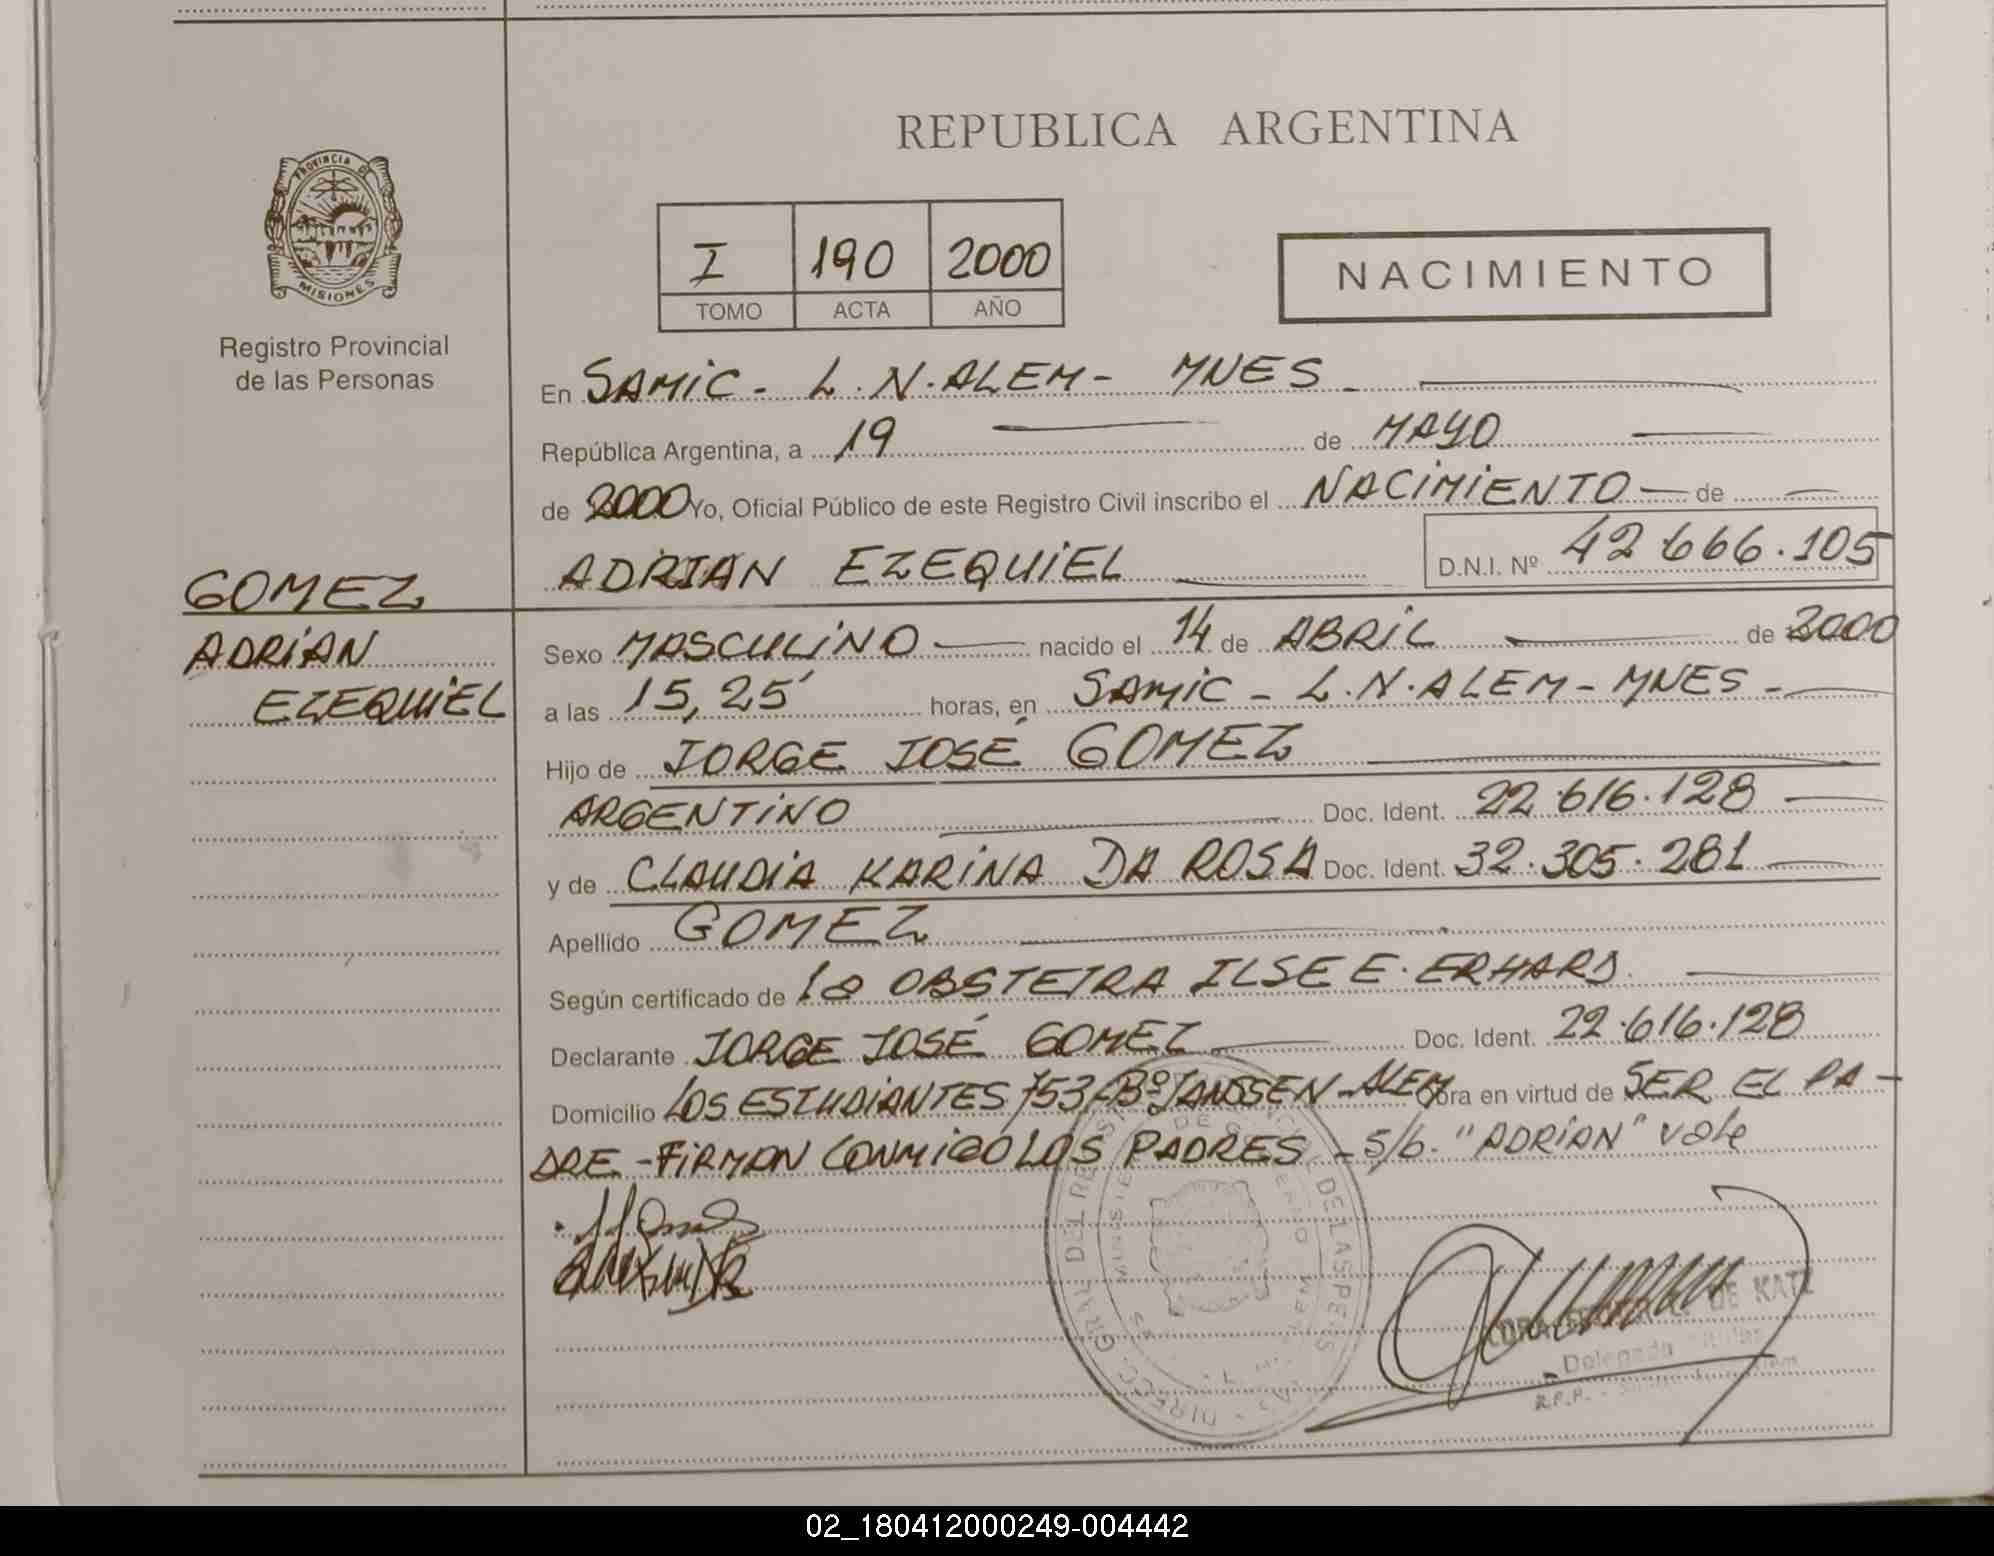 REPUBLICA ARGENTINA
PROVINCIA DE
MISIONES
Registro Provincial
de las Personas
I 190 2000
TOMO ACTA AÑO
NACIMIENTO
En SAMIC - L.N.ALEM - MNES -
República Argentina, a 19 de MAYO
de 2000 Yo, Oficial Público de este Registro Civil inscribo el NACIMIENTO de
ADRIAN EZEQUIEL D.N.I. Nº 42.666.105
GOMEZ
ADRIAN
EZEQUIEL
Sexo MASCULINO nacido el 14 de ABRIL de 2000
a las 15,25' horas, en SAMIC - L.N.ALEM - MNES -
Hijo de JORGE JOSÉ GOMEZ
ARGENTINO Doc. Ident. 22.616.128
y de CLAUDIA KARINA DA ROSA Doc. Ident. 32.305.281
Apellido GOMEZ
Según certificado de la OBSTETRA ILSE E. ERHARD.
Declarante JORGE JOSÉ GOMEZ Doc. Ident. 22.616.128
Domicilio LOS ESTUDIANTES 753 - Bº JANSSEN - ALEM Obra en virtud de SER EL PA-
DRE - FIRMAN CONMIGO LOS PADRES - S/b. "ADRIAN" vale
DE KATZ
Delegada Titular
R.P.P.
02_180412000249-004442